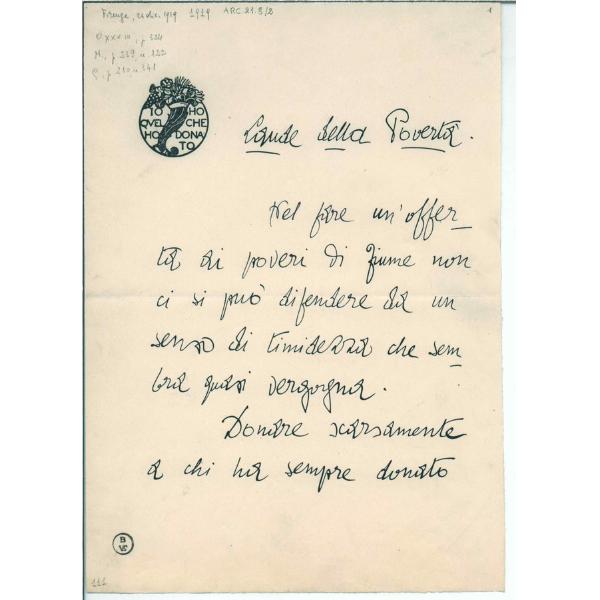 Firenze, 21 dic. 1919 1919 ARC.21.8/2 1
O. XXXIII, p. 324
M., p. 239, n. 122
IO HO
QVEL CHE
HO DONA
TO
Laude della Povertà.
Nel fare un'offer-
ta ai poveri di Fiume non
ci si può difendere da un
senso di timidezza che sem-
bra quasi vergogna.
Donare scarsamente
a chi ha sempre donato
B
VS
111